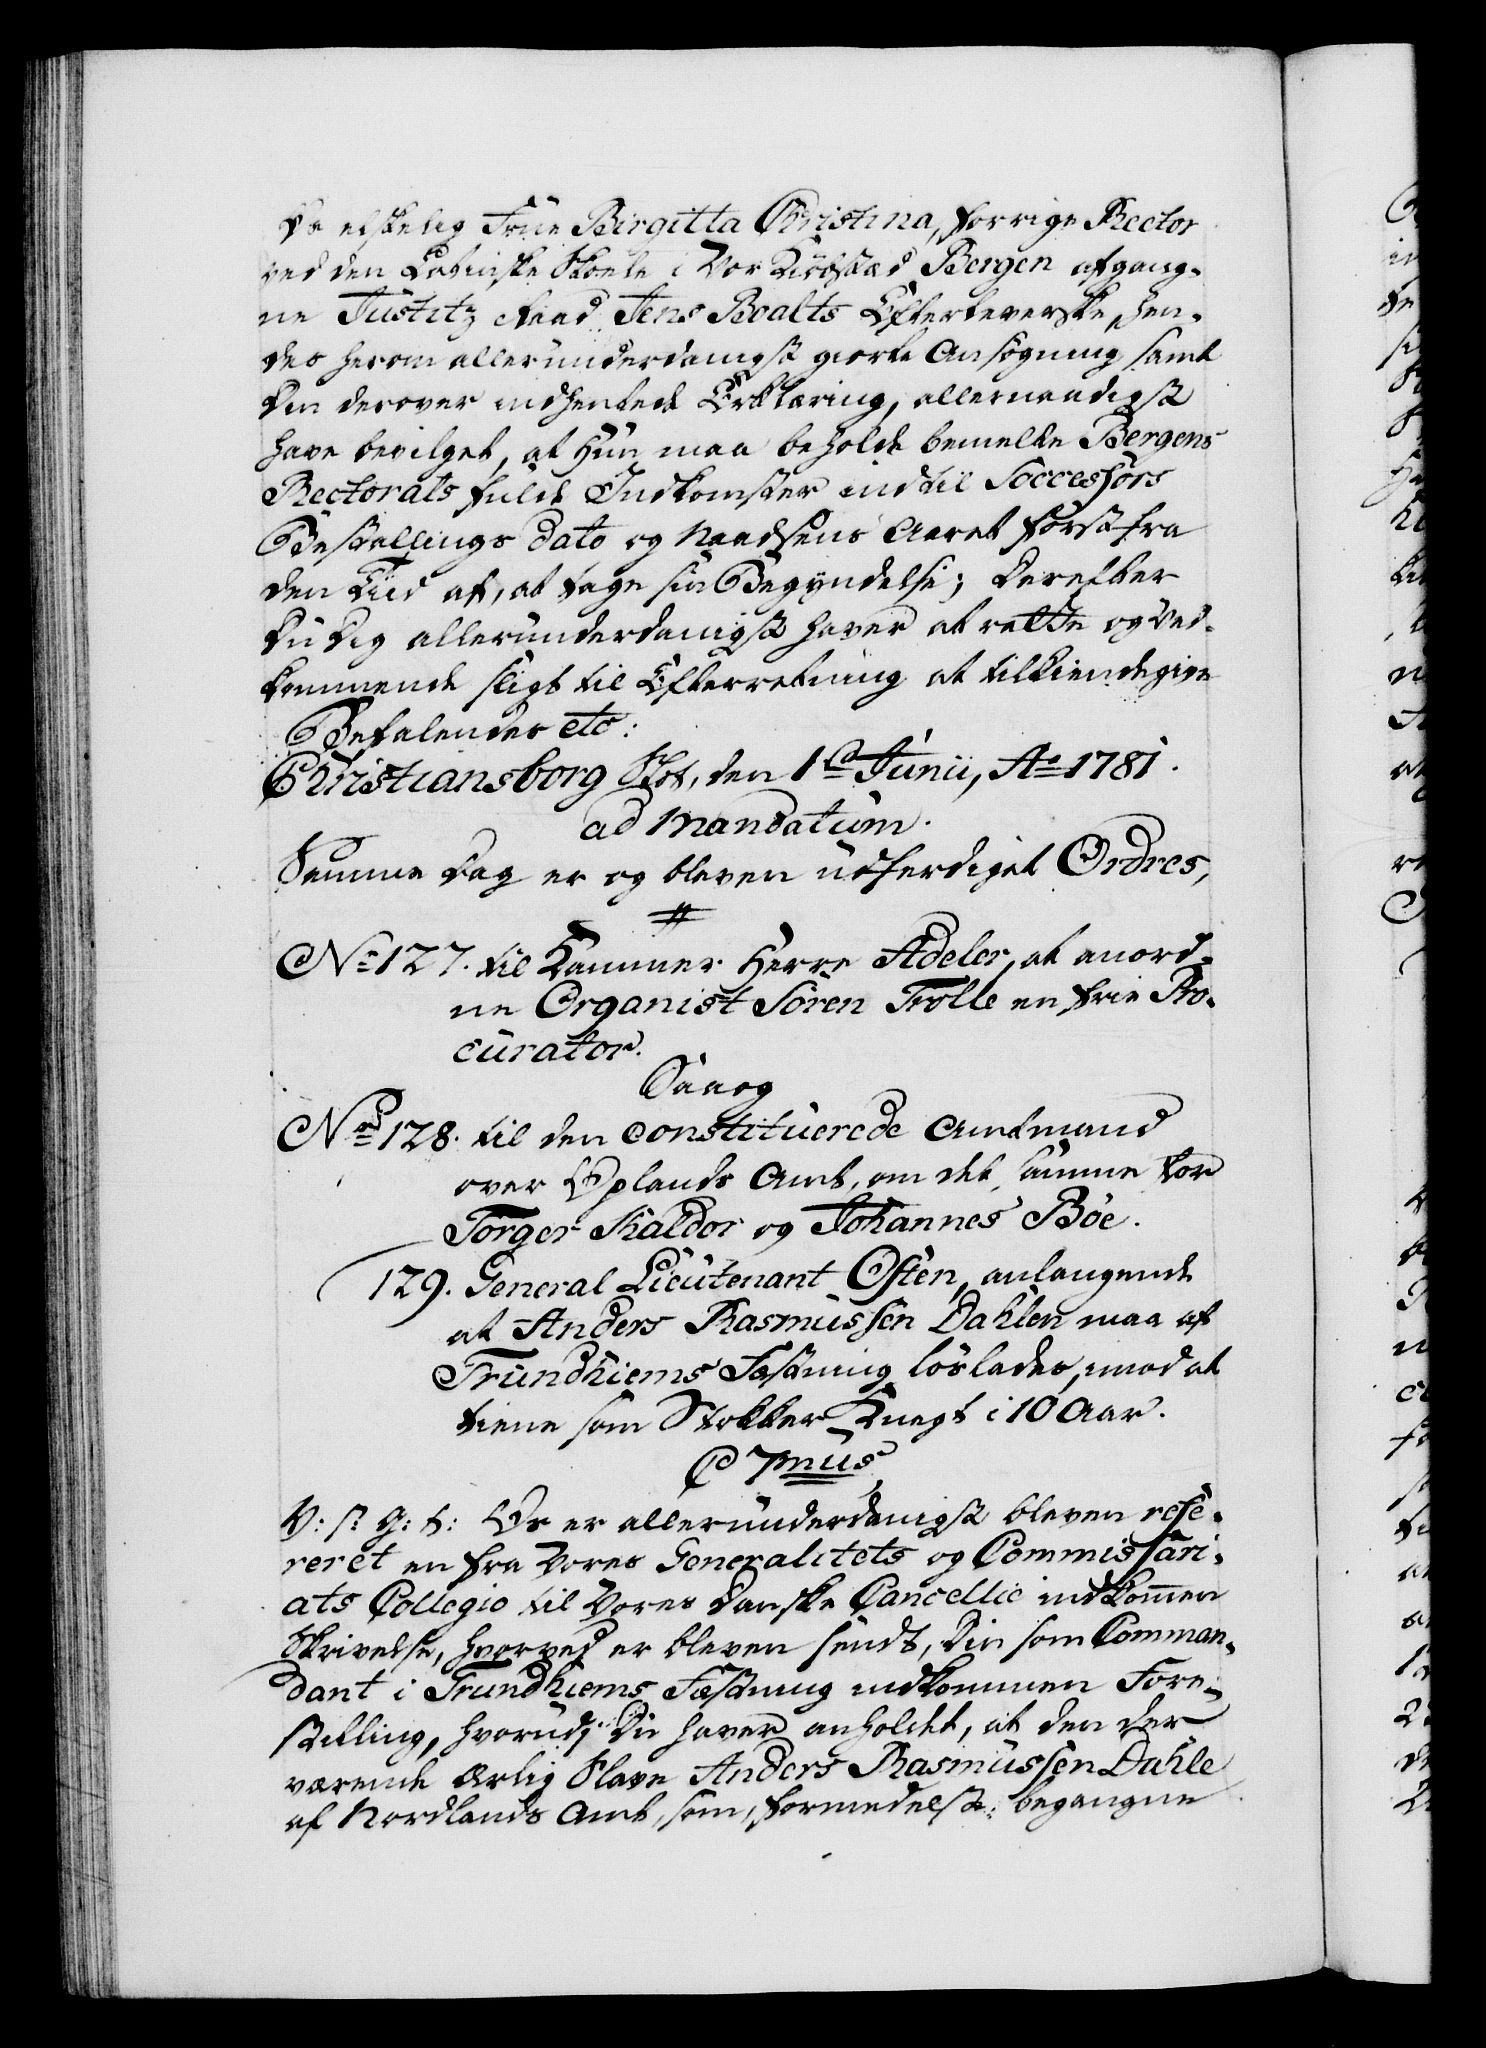 Os elskelig Frue Birgitta Christina, forrige Rector
ved den Latinske Skoele i Vor Kiøbstæd Bergen afgang-
ne Justitz Raad Jens Boalts Efterleverske, hen-
des herom allerunderdanigst giorte Ansøgning samt
den derover indhentede Erklæring, allernaadigst
have bevilget, at Hun maa beholde bemelte Bergens
Rectorats fulde Indkomster indtil Soccessors
Bestallings dato og Naadsens Aaret først fra
den Tiid af, at tage sin Begyndelse; Derefter
Du Dig allerunderdanigst haver at rette og Ved-
kommende sligt til Efterretning at tilkiendegive
Befalendes etc:
Christiansborg Slot, den 1ste Junii, Ao 1781.
ad Mandatum.
Samme Dag er og bleven udferdiget Ordres,
#
No 127. til Kammer Herre Adeler, at anord-
ne Organist Sören Trolle en frie Pro-
curator.
Saa og
No 128. til den constituerede Amtmand
over Oplands Amt, om det samme for
Torger Skaldor og Johannes Böe.
129. General Lieutenant Osten, anlangende
at Anders Rasmussen Dahlen maa af
Trundhiems Fæstning löslades, mod at
tiene som Stokker Knegt i 10 Aar.
C 7mus
V: s: G: t: Os er allerunderdanigst bleven refe-
reret en fra Vores Generalitets og Commissari-
ats Collegio til Vores Danske Cancellie indkommen
Skrivelse, hvorved er bleven sendt, Din som Comman-
dant i Trundhiems Fæstning indkommen Fore-
stilling, hvorudj Du haver anholdet, at den der
værende Ærlig Slave Anders Rasmussen Dahle
af Nordlands Amt, som, formedelst begangne